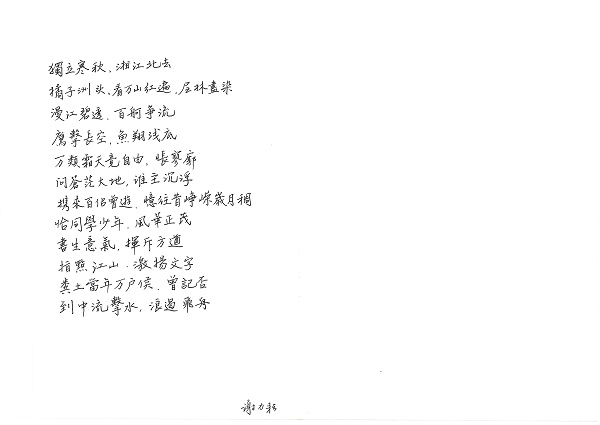 獨立寒秋,湘江北去
橘子洲头,看万山红遍,层林盡染
漫江碧透,百舸争流
鹰擊長空,魚翔浅底
万類霜天竞自由,悵寥廓
问蒼茫大地,谁主沉浮
携来百侣曾遊,憶往昔峥嵘歲月稠
恰同學少年,風華正茂
書生意氣,揮斥方遒
指點江山,激揚文字
粪土當年万户侯,曾記否
到中流擊水,浪遏飛舟
谢力